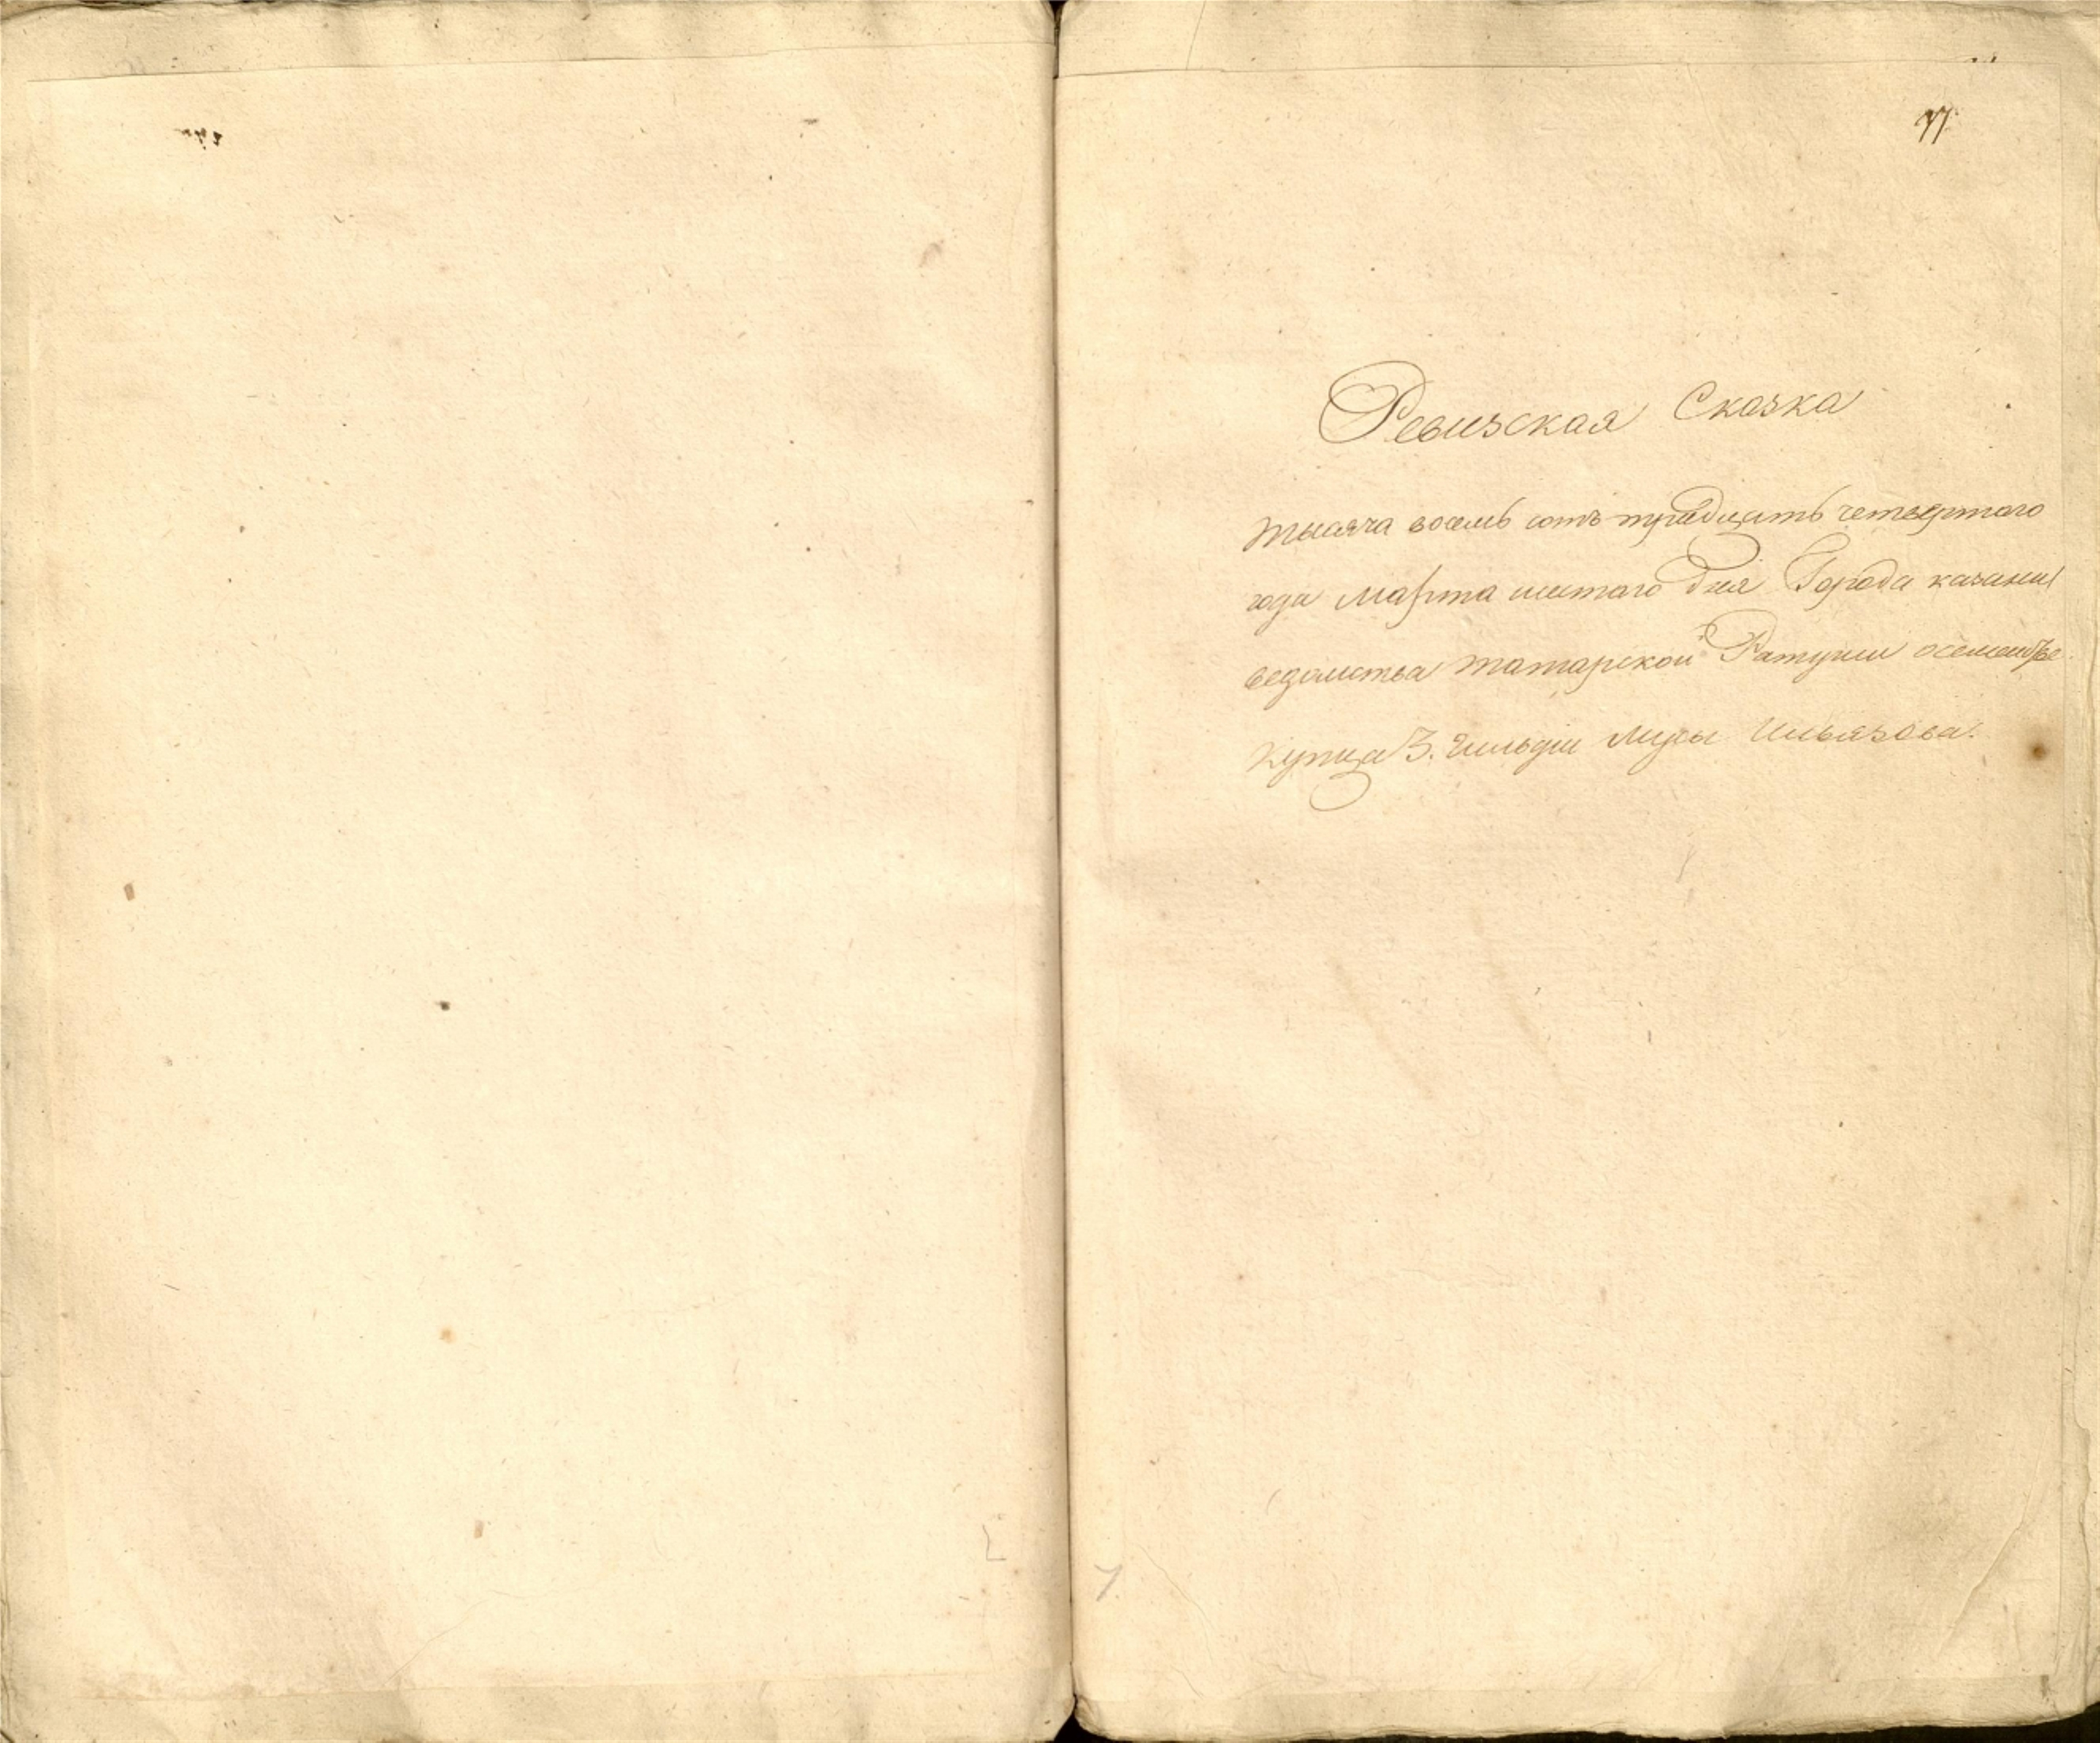 77
Ревизская Сказка
тысяча восемь сотъ тридцать четвертого
года марта шестого дня Города казани
ведомства татарской Ратуши о семействе
купца 3. Гильдии Мусы Ильязова.